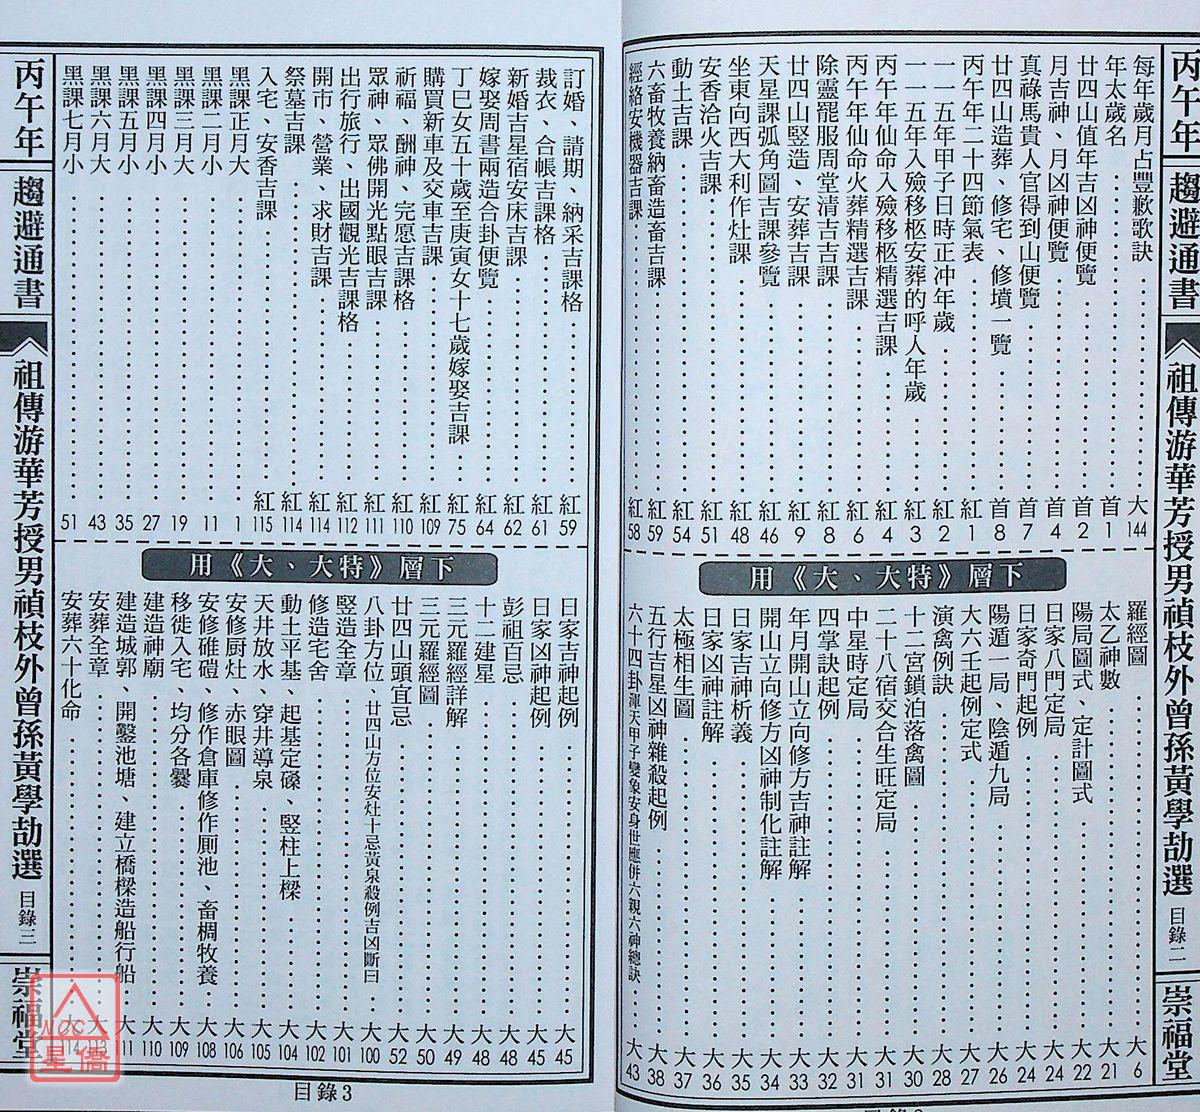 丙午年
趨避通書
祖傳游華芳授男禎枝外曾孫黃學劼選
目錄二
崇福堂
每年歲月占豐歉歌訣 大144
年太歲名 首1
廿四山值年吉凶神便覽 首2
月吉神、月凶神便覽 首4
真祿馬貴人官得到山便覽 首7
廿四山造葬、修宅、修墳一覽 首8
丙午年二十四節氣表 紅1
一一五年甲子日時正冲年歲 紅2
一一五年入殮移柩安葬的呼人年歲 紅3
丙午年仙命入殮移柩精選吉課 紅4
丙午年仙命火葬精選吉課 紅6
除靈罷服周堂清吉吉課 紅8
廿四山竪造、安葬吉課 紅9
天星課弧角圖吉課參覽 紅46
坐東向西大利作灶課 紅48
安香洽火吉課 紅51
動土吉課 紅54
六畜牧養納畜造畜吉課 紅59
經絡安機器吉課 紅58
用《大、大特》層下
羅經圖 大6
太乙神數 大21
陽局圖式、定計圖式 大22
日家八門定局 大24
日家奇門起例 大24
陽遁一局、陰遁九局 大26
大六壬起例定式 大27
演禽例訣 大28
十二宮鎖泊落禽圖 大30
二十八宿交合生旺定局 大31
中星時定局 大31
四掌訣起例 大32
年月開山立向修方吉神註解 大33
開山立向修方凶神制化註解 大34
日家吉神析義 大35
日家凶神註解 大36
太極相生圖 大37
五行吉星凶神雜殺起例 大38
六十四卦渾天甲子變象安身世應併六親六神總訣 大43
丙午年
趨避通書
祖傳游華芳授男禎枝外曾孫黃學劼選
目錄三
崇福堂
訂婚、請期、納采吉課格 紅59
裁衣、合帳吉課格 紅61
新婚吉星宿安床吉課 紅62
嫁娶周書兩造合卦便覽 紅64
丁巳女五十歲至庚寅女十七歲嫁娶吉課 紅75
購買新車及交車吉課 紅109
祈福、酬神、完愿吉課格 紅110
眾神、眾佛開光點眼吉課 紅111
出行旅行、出國觀光吉課格 紅112
開市、營業、求財吉課 紅114
祭墓吉課 紅114
入宅、安香吉課 紅115
黑課正月大 1
黑課二月小 11
黑課三月大 19
黑課四月小 27
黑課五月小 35
黑課六月大 43
黑課七月小 51
用《大、大特》層下
日家吉神起例 大45
日家凶神起例 大45
彭祖百忌 大48
十二建星 大48
三元羅經詳解 大49
三元羅經圖 大50
廿四山頭宜忌 大52
八卦方位、廿四山方位安灶十忌黃泉殺例吉凶斷曰 大100
竪造全章 大101
修造宅舍 大102
動土平基、起基定磉、竪柱上樑 大104
天井放水、穿井導泉 大105
安修厨灶、赤眼圖 大106
安修碓磑、修作倉庫修作厠池、畜椆牧養 大108
移徙入宅、均分各爨 大109
建造神廟 大110
建造城郭、開鑿池塘、建立橋樑造船行船 大111
安葬全章 大113
安葬六十化命 大114
目錄3
NCC
星僑